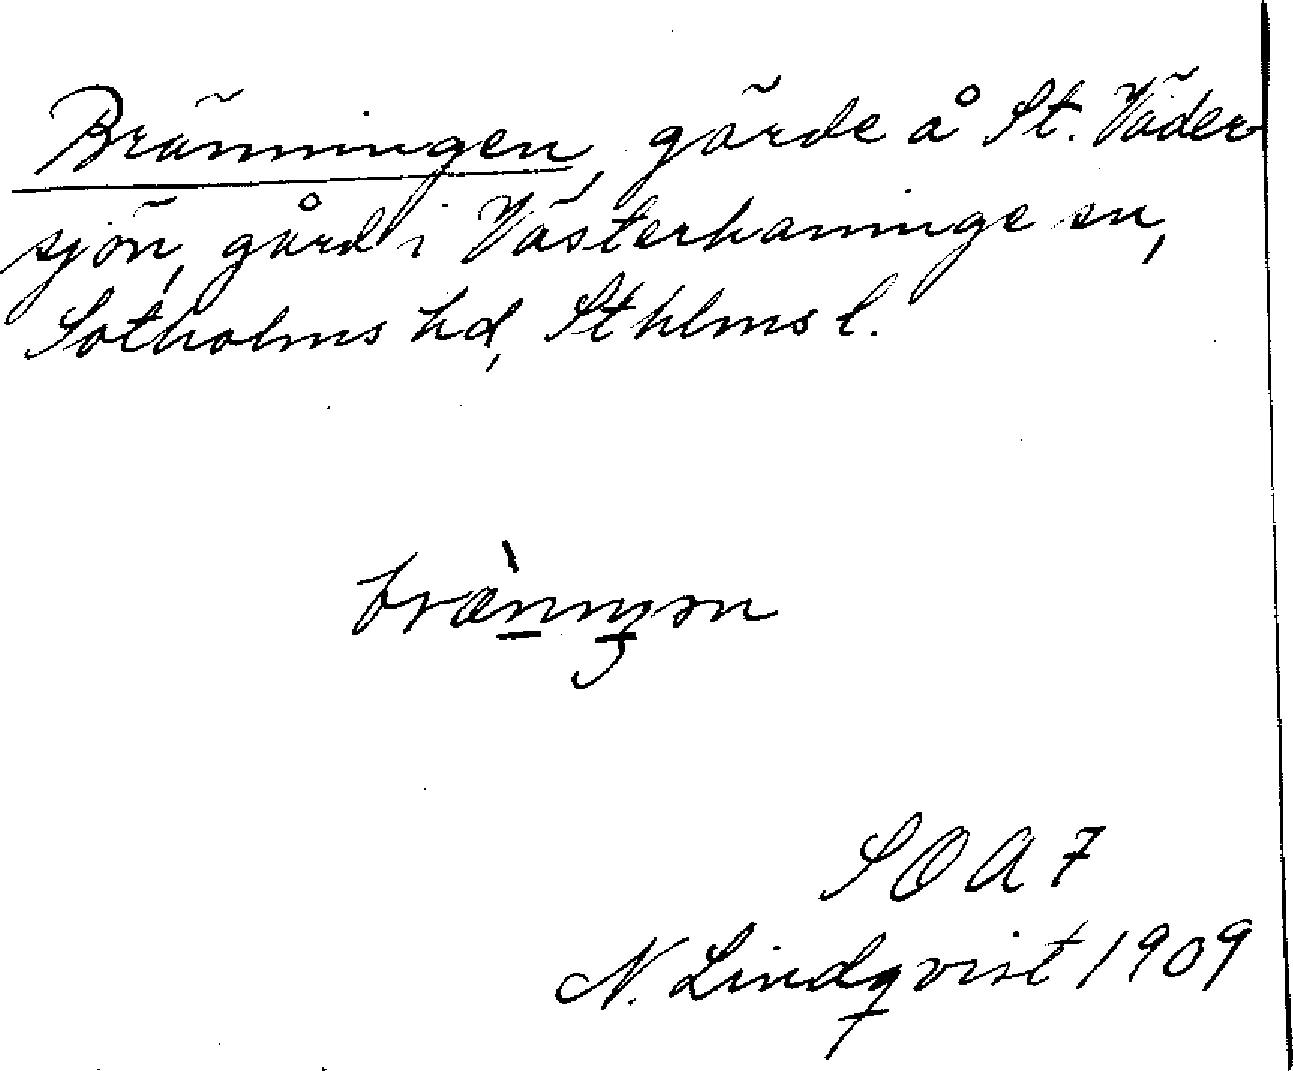 Bränningen, gärde å St. Väder-
sjön, gård i Västerhaninge sn,
Sotholms hd, Sthlms l.
SOA 7
N. Lindqvist 1909